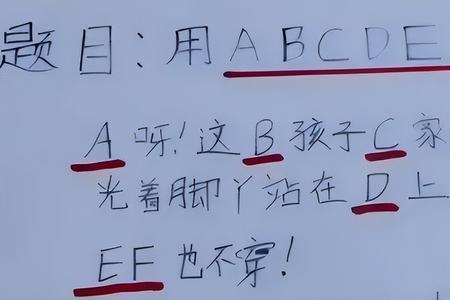 题目:用ABCDE
A呀!这B孩子C家
光着脚丫站在D上
EF也不穿!